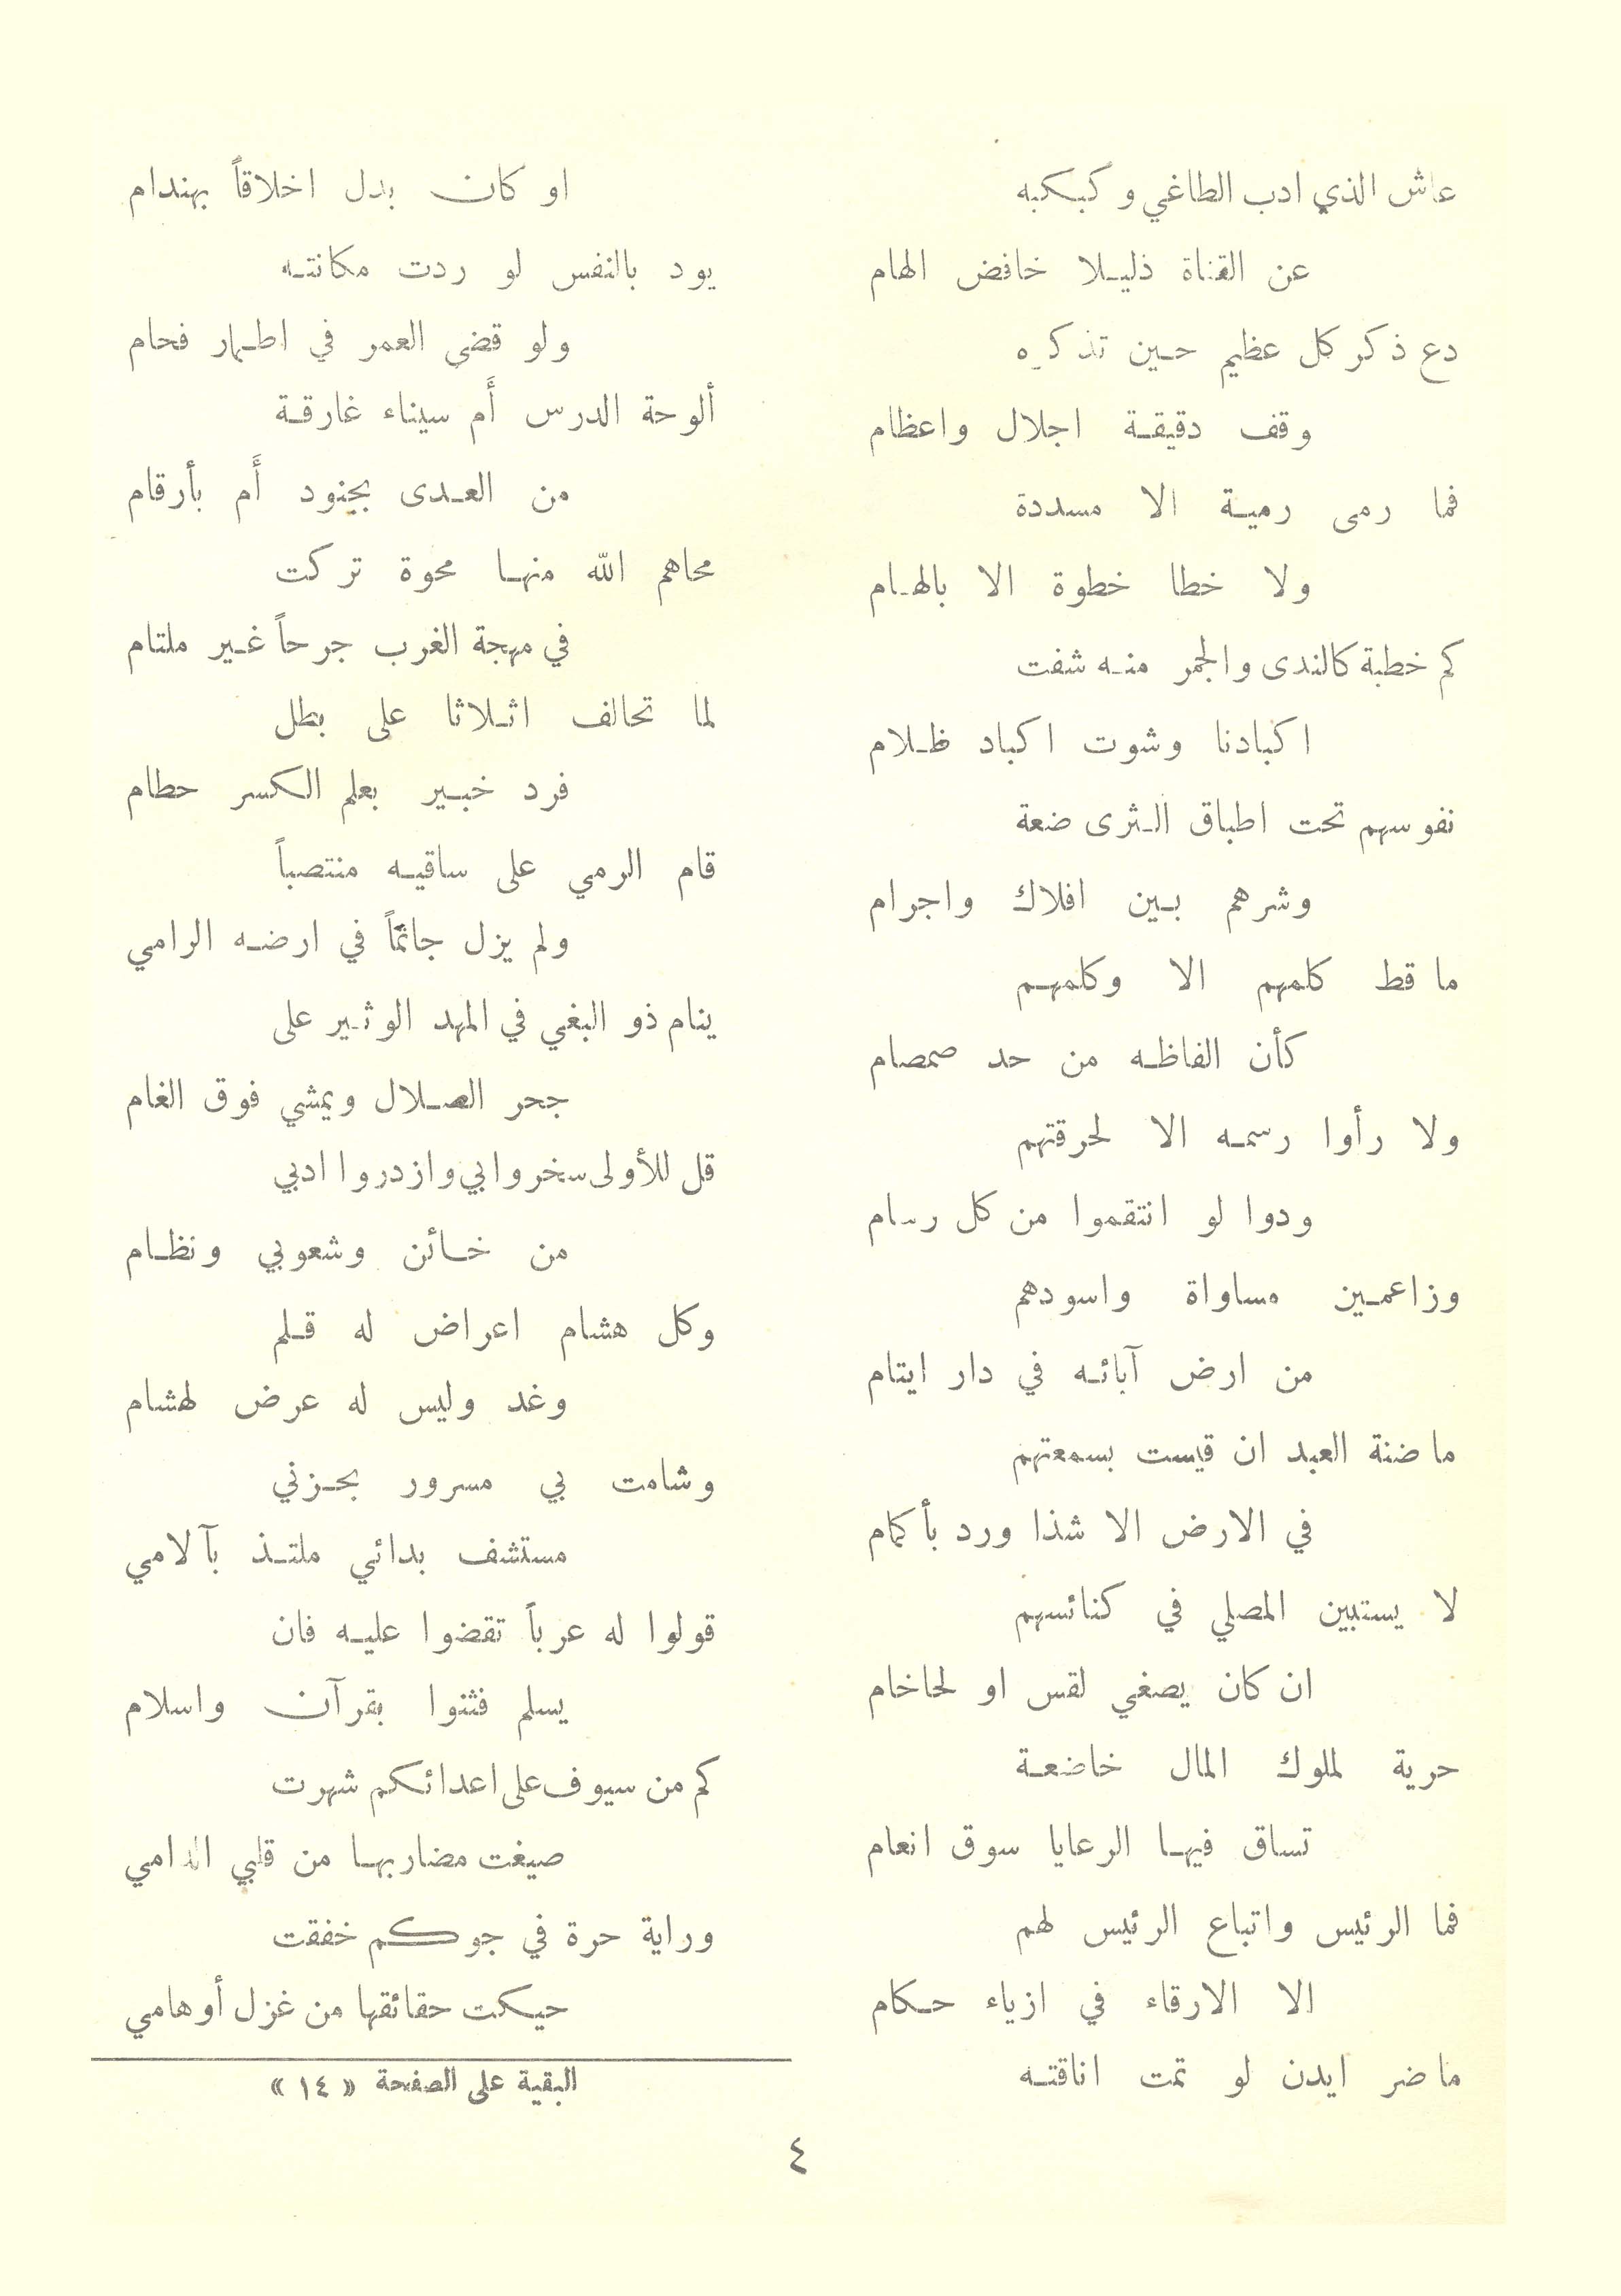 عاش الذي ادب الطاغي وكبكبه
عن القناة ذليلا خافض الهام
دع ذكر كل عظيم حين تذكره
وقف دقيقة اجلال واعظام
فما رمى رمية الا مسددة
ولا خطا خطوة الا بالهام
كم خطبة كالندى والجمر منه شفت
اكبادنا وشوت اكباد ظلام
نفوسهم تحت اطباق الثرى ضعة
وشرهم بين افلاك واجرام
ما قط كلمهم الا وكلمهم
كأن الفاظه من حد صمصام
ولا رأوا رسمه الا لحرقتهم
ودوا لو انتقموا من كل رسام
وزاعمين مساواة واسودهم
من ارض آبائه في دار ايتام
ما ضنة العبد ان قيست بسمعتهم
في الارض الا شذا ورد بأكمام
لا يستبين المصلي في كنائسهم
ان كان يصغي لقس او لحاخام
حرية لملوك المال خاضعة
تساق فيها الرعايا سوق انعام
فما الرئيس واتباع الرئيس لهم
الا الارقاء في ازياء حكام
ما ضر ايدن لو تمت اناقته
او كان بدل اخلاقاً بهندام
يود بالنفس لو ردت مكانته
ولو قضى العمر في اطمار فحام
ألوحة الدرس أَم سيناء غارقة
من العدى بجنود أَم بأرقام
محاهم الله منها محوة تركت
في مهجة الغرب جرحاً غير ملتام
لما تحالف اثلاثا على بطل
فرد خبير بعلم الكسر حطام
قام الرمي على ساقيه منتصباً
ولم يزل جاثماً في ارضه الرامي
ينام ذو البغي في المهد الوثير على
جحر الصلال ويمشي فوق الغام
قل للأولى سخروا بي وازدروا ادبي
من خائن وشعوبي ونظام
وكل هشام اعراض له قلم
وغد وليس له عرض لهشام
وشامت بي مسرور بحزني
مستشف بدائي ملتذ بآلامي
قولوا له عرباً تقضوا عليه فان
يسلم فثنوا بقرآن واسلام
كم من سيوف على اعدائكم شهرت
صيغت مضاربها من قلبي الدامي
وراية حرة في جوكم خفقت
حيكت حقائقها من غزل أوهامي
البقية على الصفحة « ١٤ »
٤